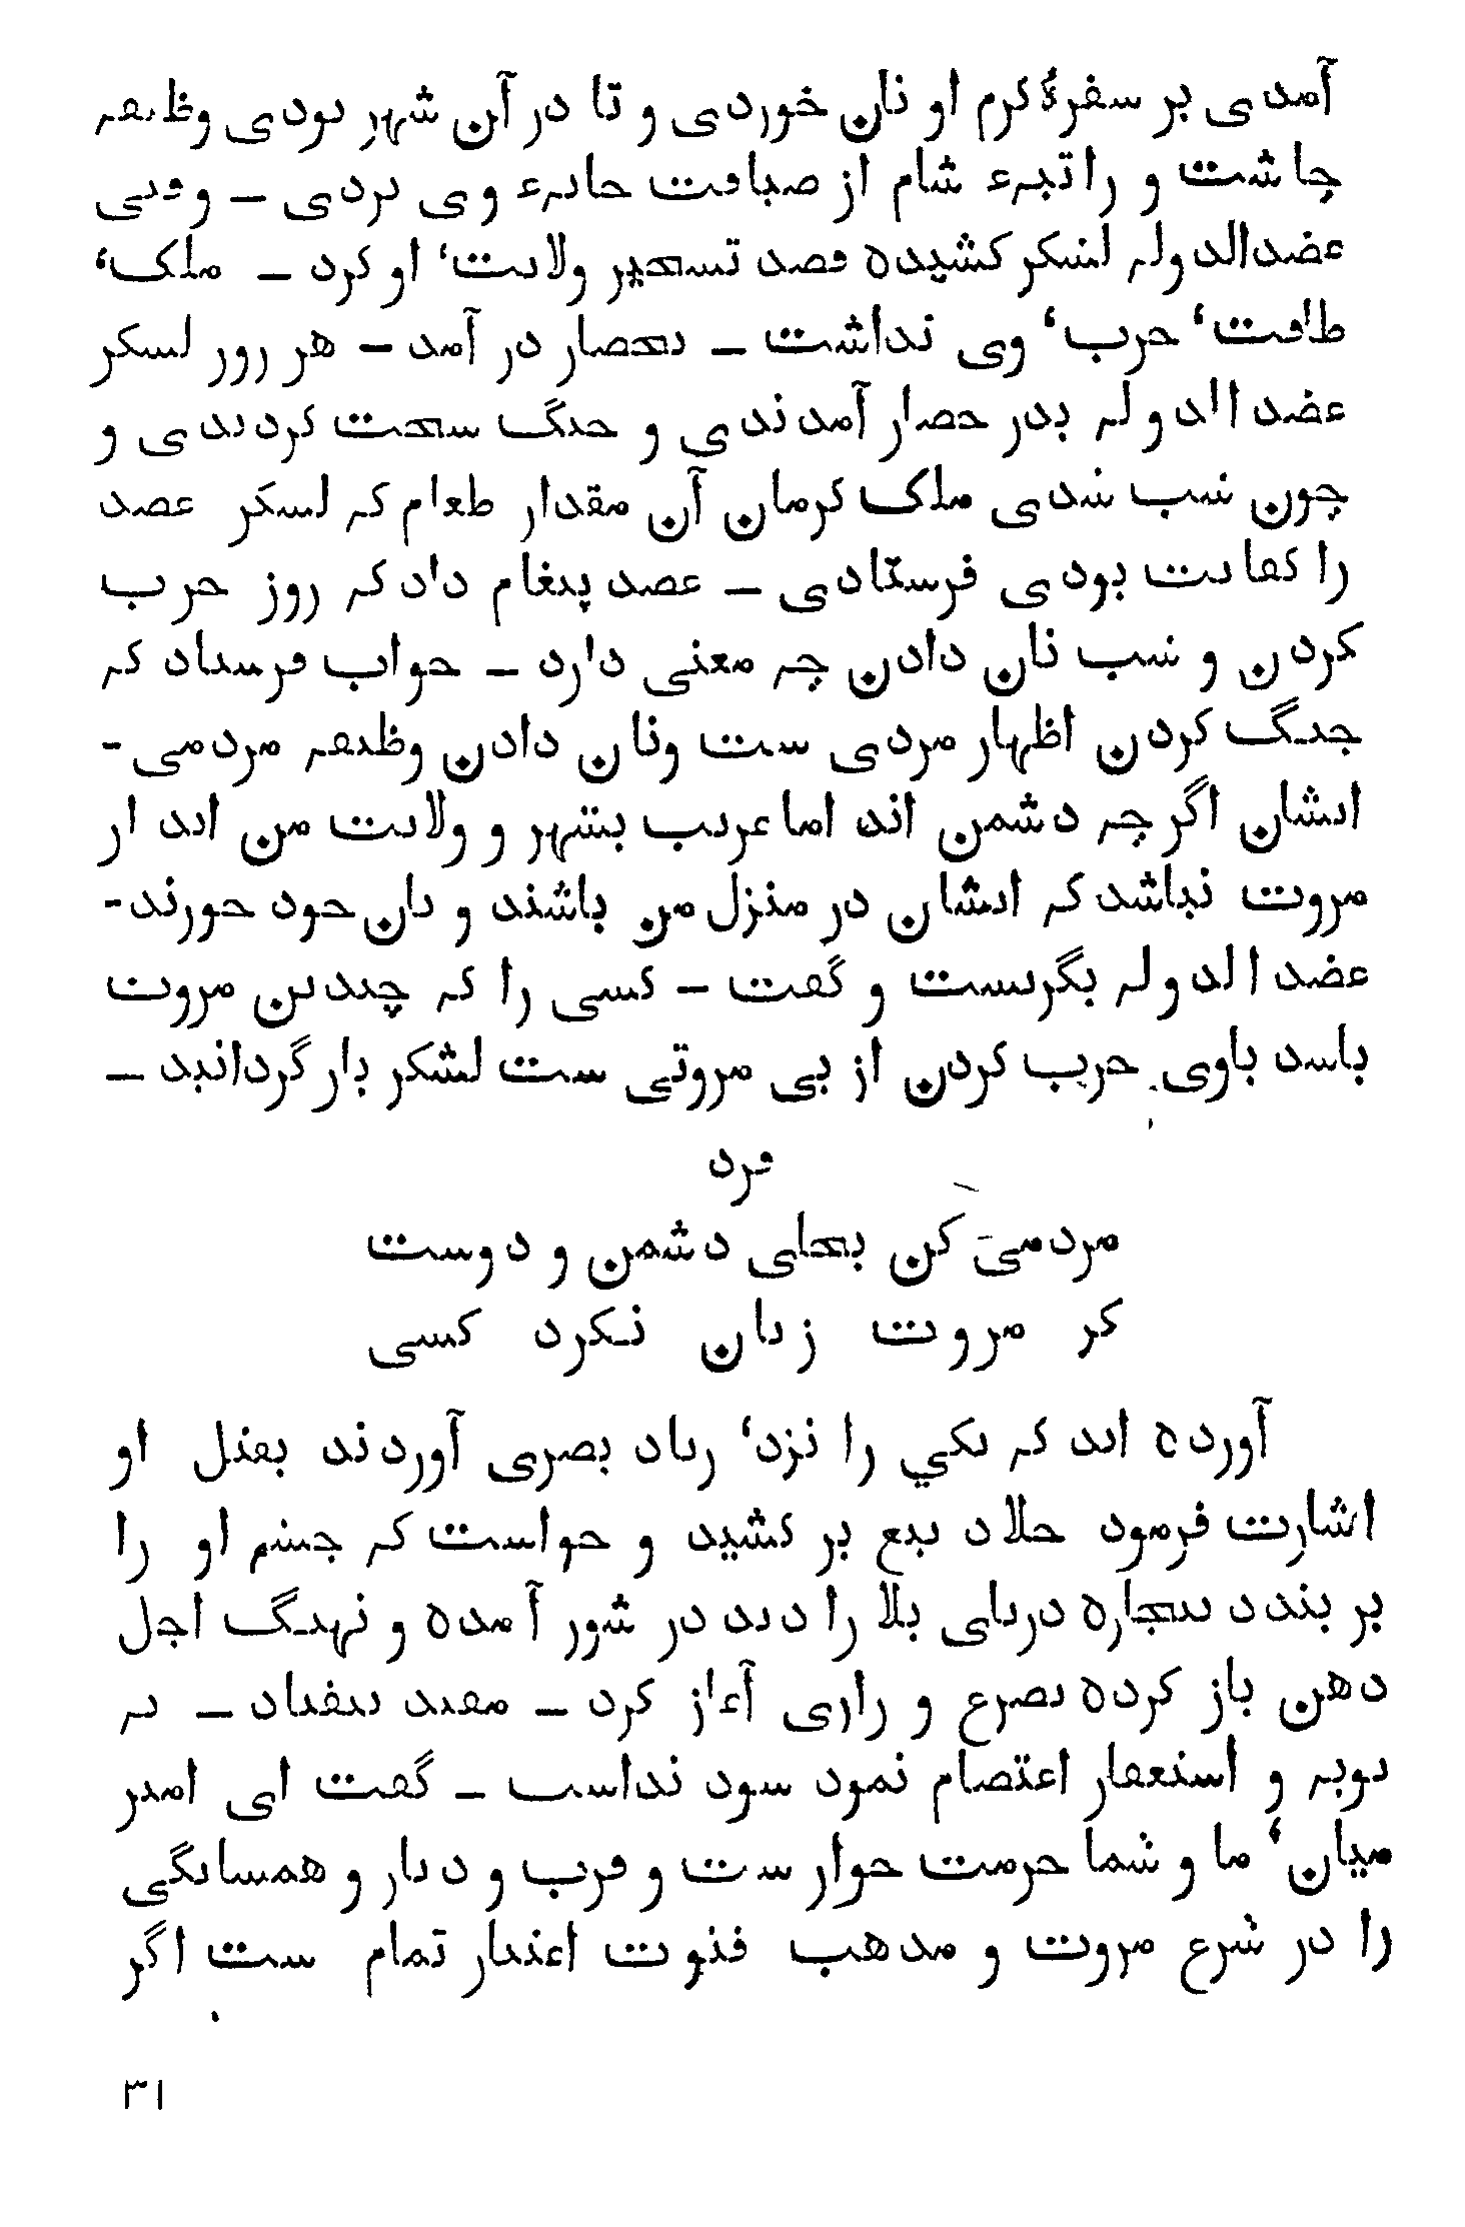 آمدی بر سفرهٔ کرم او نان خوردی و تا در آن شهر بودی وظیفه
چاشت و راتبهء شام از ضیافت خانهء وی بردی – وقتی
عضدالدوله لشکر کشیده قصد تسخیر ولایت‘ او کرد – ملک‘
طاقت‘ حرب‘ وی نداشت – بحصار در آمد – هر روز لشکر
عضد الدوله بدر حصار آمدندی و جنگ سخت کردندی و
چون شب شدی ملک کرمان آن مقدار طعام که لشکر عضد
را کفایت بودی فرستادی – عضد پیغام داد که روز حرب
کردن و شب نان دادن چه معنی دارد – جواب فرستاد که
جنگ کردن اظهار مردی ست ونان دادن وظیفه مردمی -
ایشان اگر چه دشمن اند اما غریب بشهر و ولایت من اند از
مروت نباشد که ایشان در منزل من باشند و نان خود خورند-
عضد الدوله بگریست و گفت – کسی را که چندین مروت
باشد باوی حرب کردن از بی مروتی ست لشکر باز گردانید –
فرد
مردمی کن بجای دشمن و دوست
کز مروت زیان نکرد کسی
آورده اند که یکی را نزد‘ زیاد بصری آوردند بقتل او
اشارت فرمود جلاد تیغ بر کشید و خواست که چشم او را
بر بندد بیچاره دریای بلا را دید در شور آمده و نهنگ اجل
دهن باز کرده تضرع و زاری آغاز کرد – مفید نیفتاد – به
توبه و استغفار اعتصام نمود سود نداشت – گفت ای امیر
میان‘ ما و شما حرمت جوار ست و قرب و دیار و همسایگی
را در شرع مروت و مذهب فتوت اعتبار تمام ست اگر
۳۱